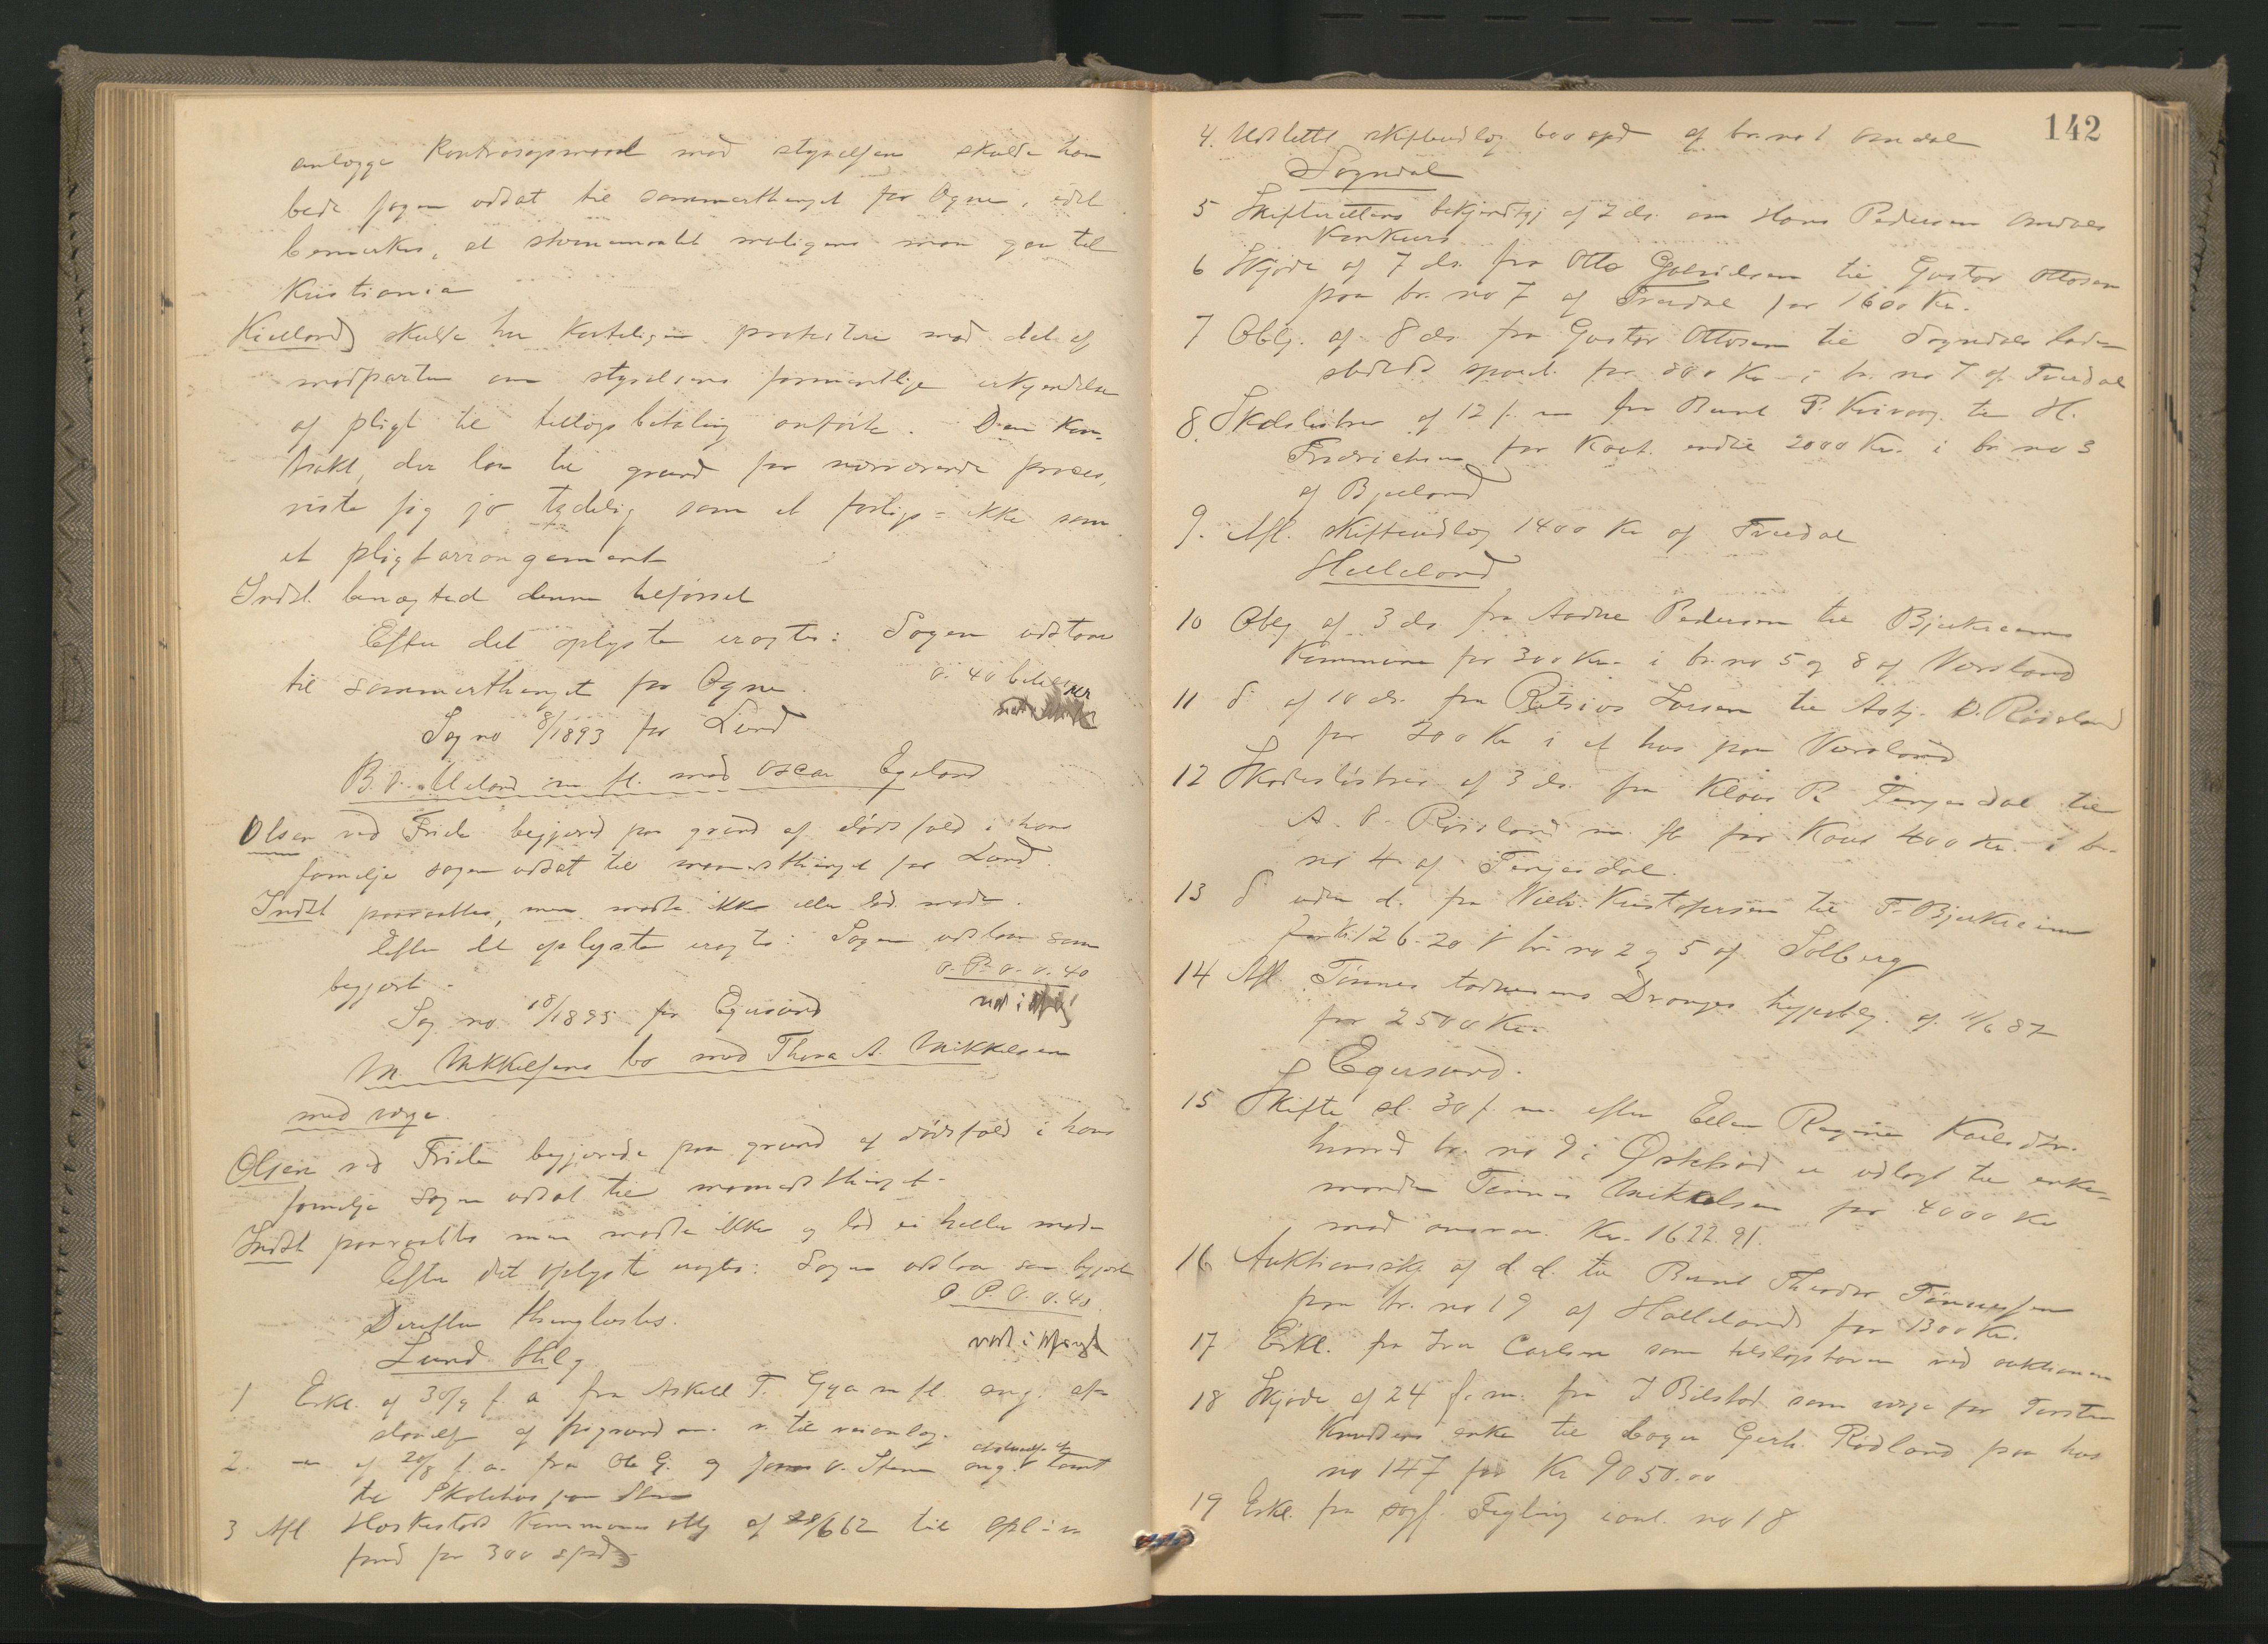 anlægge Kontrasøgsmaal mod styrelsen skulde han
bede sagen udsat til sommerthinget for Ogne, idet
bemærkes, at stevnemaalet muligens maa gaa til
Kristiania
Kielland skulde her korteligen protestere mod det af
modparten om styrelsens formentlige erkjendelse
af pligt til tillægsbetaling anførte. Den Kon-
trakt, der laa til grund for nærværende proces,
viste sig jo tydelig som et forligs- ikke som
et pligtarrangement
Indst. benægted denne tilførsel
Efter det oplyste eragtes: Sagen udstaar
til sommerthinget for Ogne.
0.40 betaler
Sag no 8/1893 for Lund
B. O. Meland m fl. mod Oscar Egeland
Olsen ved Friele begjæred paa grund af dødsfald i hans
familje sagen udsat til maanedsthinget for Lund.
Indst paaraabtes, men mødte ikke eller lod møde.
Efter det oplyste eragtes: Sagen udstaar som
begjært.
O. P. O. 0.40
Sag no 18/1895 for Egersund
M. Mikkelsens bo mod Thora A. Mikkelsen
med værge.
Olsen ved Friele begjærede paa grund af dødsfald i hans
familje sagen udsat til maanedsthinget.
Indst paaraabtes men mødte ikke og lod ei heller møde
Efter det oplyste eragtes: Sagen udstaar som begjært
O. P. O. 0.40
Derefter thinglæstes.
Lund thlg
1 Erkl. af 30/9 f. a. fra Askell T. Gya m fl. ang. af-
staaelse af jordgrund m. v. til veianlæg.
2. — af 20/8 f. a. fra Ole G. og O. Steen ang. afstaaelse af tomt
til Skolehus paa
3 Afl Heskestads Kommunes oblg af 28/6 62 til opl:v
fond for 300 spd
142
4. Udslettet skifteudlæg 600 spd af br. no 1 Omdal
Sogndal
5 Skifterettens bekjendtgj af 2 ds. om Hans Pedersen Omdals
Konkurs
6 Skjøde af 7 ds. fra Otto Gabrielsen til Gustav Ottosen
paa br. no 7 af Frøedal for 1600 Kr.
7 Oblg. af 8 ds fra Gustav Ottosen til Sogndals lade-
steds spareb. for 800 Kr i br. no 7 af
8. Skdslösbrev af 12 f. m fra Bernt P. til H.
Fredriksen for Kaut. indtil 2000 Kr. i br no 3
af Bjelland
9. Afl. skifteudlæg 1400 Kr af
Helleland
10 Oblg af 3 ds fra Aadne Pedersen til Bjerkreims
Kommune for 300 Kr. i br. no 5 og 8 af Versland
11 d° af 10 ds. fra Larsen til Asbj. O. Røisland
for 200 Kr i et hus paa Versland
12 Skadesløsbrev af 3 ds. fra Klaus P. Terjesdal til
A. O. Røisland m. fl for Kaut 400 Kr. i br.
no 4 af Terjesdal.
13 d° uden d. fra Niels Kristofersen til T. Bjerkreim
for Kr. 126.20 i br. no 2 og 5 af Solberg
14 Afl. Tønnes Tadnesens Dranges hypoblg. af 11/6 87
for 2500 Kr.
Egersund.
15 Skifte sl. 30 f. m. efter Ellen Regine Karlsdtr.
hvorved br. no 9 i er udlagt til enke-
manden Tønnes Mikkelsen for 4000 Kr
mod ansvar. Kr. 1622.91.
16 Auktionsskj. af d. d. til Bernt Theodor Tønnesen
paa br. no 19 af Hallelands for 1300 Kr.
17 Erkl. fra Ivar Carlsen som tilslagshaver ved auktionen
18 Skjøde af 24 f. m. fra J Bilstad som værge for Torsten
Knudsens enke til bager Gerh. Rødland paa hus
no 147 for Kr 9050.00
19 Erkl. fra sogf. Fugling i anl. no 18